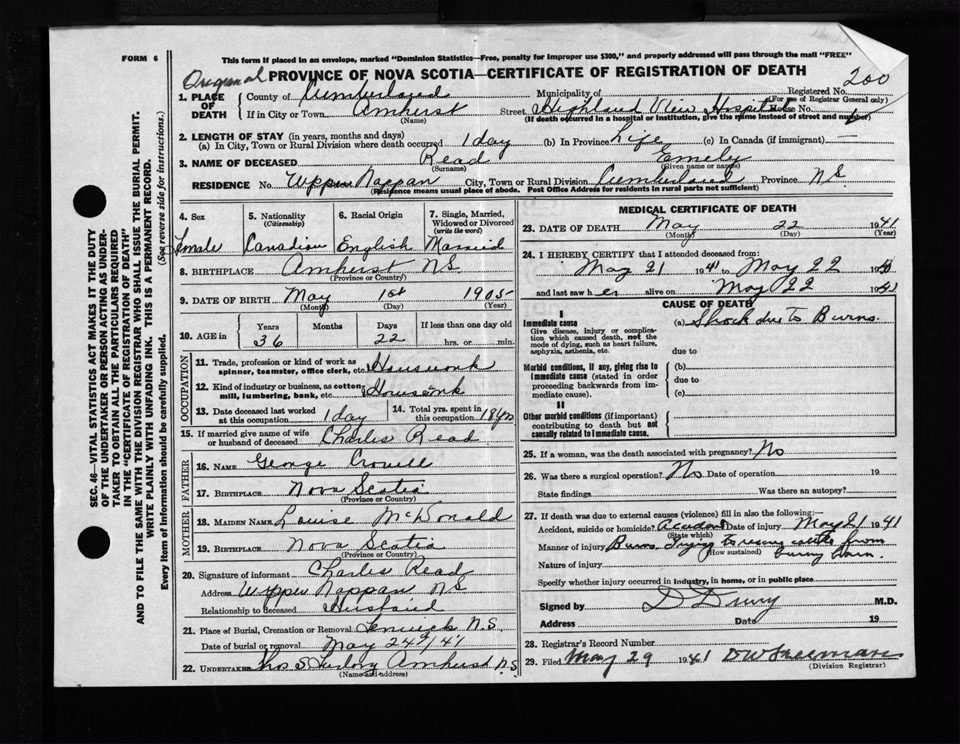 FORM 6
This form if placed in an envelope, marked "Dominion Statistics—Free, penalty for improper use $300," and properly addressed will pass through the mail "FREE"
Original PROVINCE OF NOVA SCOTIA—CERTIFICATE OF REGISTRATION OF DEATH 200
Registered No.
(For use of Registrar General only)
1. PLACE OF DEATH County of Cumberland Municipality of
If in City or Town Amherst (Name) Street Highland View Hospital House No.
(If death occurred in a hospital or institution, give the name instead of street and number)
2. LENGTH OF STAY (in years, months and days)
(a) In City, Town or Rural Division where death occurred 1 day (b) In Province Life (c) In Canada (if immigrant) —
3. NAME OF DECEASED Read (Surname) Emely (Given name or names)
RESIDENCE No. Upper Nappan City, Town or Rural Division Cumberland Province N S
(Residence means usual place of abode. Post Office Address for residents in rural parts not sufficient)
4. Sex Female
5. Nationality (Citizenship) Canadian
6. Racial Origin English
7. Single, Married, Widowed or Divorced (write the word) Married
8. BIRTHPLACE Amherst NS (Province or Country)
9. DATE OF BIRTH May (Month) 1st (Day) 1905 (Year)
10. AGE in Years 36 Months Days 22 If less than one day old hrs. or min.
OCCUPATION
11. Trade, profession or kind of work as spinner, teamster, office clerk, etc. Housework
12. Kind of industry or business, as cotton mill, lumbering, bank, etc. Housework
13. Date deceased last worked at this occupation 1 day
14. Total yrs. spent in this occupation 18 yrs
15. If married give name of wife or husband of deceased Charles Read
FATHER
16. NAME George Crowell
17. BIRTHPLACE Nova Scotia (Province or Country)
MOTHER
18. MAIDEN NAME Louise McDonald
19. BIRTHPLACE Nova Scotia (Province or Country)
20. Signature of informant Charles Read
Address Upper Nappan NS
Relationship to deceased Husband
21. Place of Burial, Cremation or Removal Fenwick N.S.
Date of burial or removal May 24th/41
22. UNDERTAKER Amherst N.S.
(Name and address)
MEDICAL CERTIFICATE OF DEATH
23. DATE OF DEATH May (Month) 22 (Day) 1941 (Year)
24. I HEREBY CERTIFY that I attended deceased from:
May 21 1941 to May 22 19
and last saw her alive on May 22 1941
CAUSE OF DEATH
I
Immediate cause
Give disease, injury or complication which caused death, not the mode of dying, such as heart failure, asphyxia, asthenia, etc.
(a) Shock due to Burns.
due to
Morbid conditions, if any, giving rise to immediate cause (stated in order proceeding backwards from immediate cause).
(b)
due to
(c)
II
Other morbid conditions (if important) contributing to death but not causally related to immediate cause.
25. If a woman, was the death associated with pregnancy? No
26. Was there a surgical operation? No Date of operation 19
State findings Was there an autopsy?
27. If death was due to external causes (violence) fill in also the following:—
Accident, suicide or homicide? Accident (State which) Date of injury May 21 1941
Manner of injury Burns. Trying to rescue cattle from burning barn. (How sustained)
Nature of injury
Specify whether injury occurred in industry, in home, or in public place
Signed by D Drury M.D.
Address Date 19
28. Registrar's Record Number
29. Filed May 29 1941 D W Freeman
(Division Registrar)
SEC. 46—VITAL STATISTICS ACT MAKES IT THE DUTY
OF THE UNDERTAKER OR PERSON ACTING AS UNDER-
TAKER TO OBTAIN ALL THE PARTICULARS REQUIRED
IN THE "CERTIFICATE OF REGISTRATION OF DEATH"
AND TO FILE THE SAME WITH THE DIVISION REGISTRAR WHO SHALL ISSUE THE BURIAL PERMIT.
WRITE PLAINLY WITH UNFADING INK. THIS IS A PERMANENT RECORD.
Every item of information should be carefully supplied. (See reverse side for instructions.)